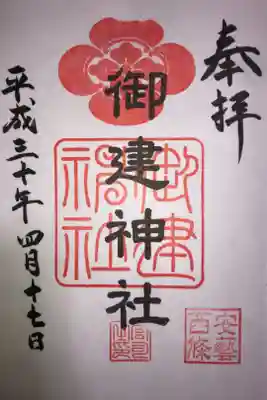 奉拝
御建神社
平成三十年四月十七日
御建神社
安藝西條